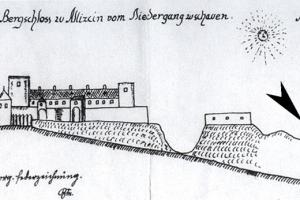 Bergschloss zu Mizcin vom Niedergang zuschauen.
Federzeichnung.